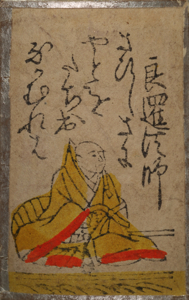 良暹法師
さひしさに
やとをたち出
なかむれは